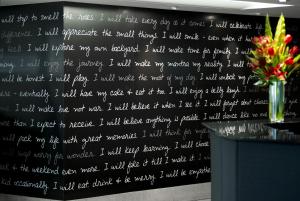 will stop to smell the roses. I will take every day as it comes. I will celebrate life
difference. I will appreciate the small things. I will smile - even when it hurts
back. I will explore my own backyard. I will make time for family. I will
money. I will enjoy the journey. I will make my mantra my reality. I will
will be honest. I will play. I will make the most of my day. I will unlock my
here - eventually. I will have my cake & eat it too. I will enjoy a belly laugh
I will make love not war. I will believe it when I see it. I will forget about
more than I expect to receive. I will believe anything is possible. I will dance like no
will pack my life with great memories. I will think for myself.
laugh. I will keep learning. I will choose
even more. I will fake it till I make it. I
kid occasionally. I will eat drink & be merry. I will be